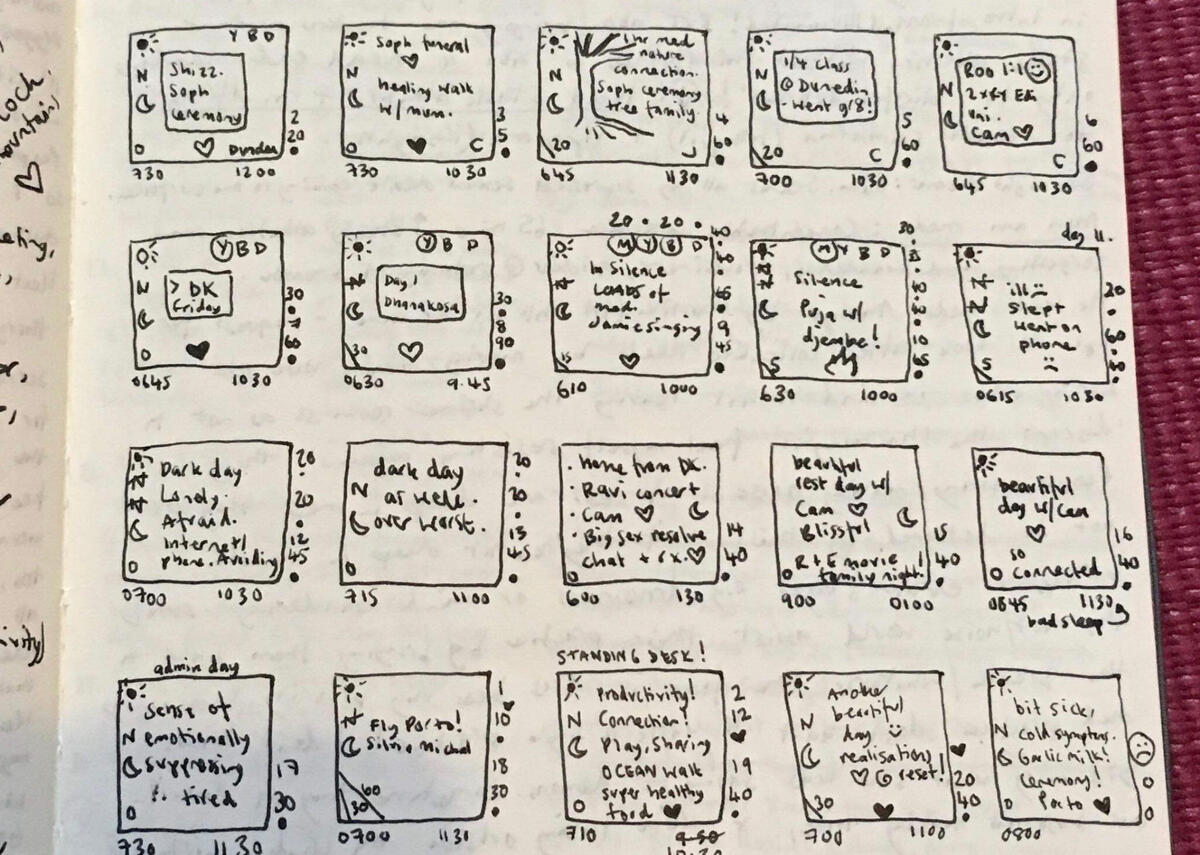 Loch
mountain,
Y B D
Shizz.
Soph
Ceremony
Dundee
2
20
730 1200
Soph funeral
healing walk
w/ mum.
N
C
3
5
730 1030
1 hr med
nature
connection.
Soph ceremony
tree family.
N
20
4
60
645 1130
1/4 class
@ Dunedin
- Went 9/8!
N
20 C
5
60
700 1030
Roo 1:1
uni.
Cam
N
C
6
60
645 1030
Y B D
N
> DK
Friday
0
30
60
0645 1030
Y B D
N
Day 1
Dhanakosa
30
30
8
90
0630 9.45
20 . 20 . 40
M Y B D
In Silence
LOADS of
med.
Jamie singing
N
15
9
45
610 1000
30
M Y B D
Silence
Puja w/
djembe!
N
5
10
65
630 1000
day 11.
ill
slept
went on
phone
N
5
20
60
30
0615 1030
Dark day
Lonely.
Afraid.
internet/
phone. Avoiding
0
20
20
12
45
0700 1030
dark day
as well.
over worst.
N
0
20
20
13
45
715 1100
. Home from DK.
. Ravi concert
. Cam
. Big sex resolve
chat + rx.
0
14
40
600 130
beautiful
rest day w/
Cam
Blissful
R + E movie!
family night.
0
15
40
900 0100
beautiful
day w/ Cam
so
connected
0
16
40
0845 1130
bad sleep
admin day
Sense of
N emotionally
suppressing
!. tired
0
17
30
730 1130
N
Fly Porto!
Silvia Michal
60
30
1
10
18
30
0700 1130
STANDING DESK!
Productivity!
N Connection!
Play, sharing
OCEAN walk
super healthy
food
0
2
12
19
40
710 9.50
10.30
Another
beautiful
day
realisations
reset!
N
30
20
40
700 1100
bit sick,
N cold symptoms.
Garlic milk!
Ceremony!
Porto
0
0
0
0800